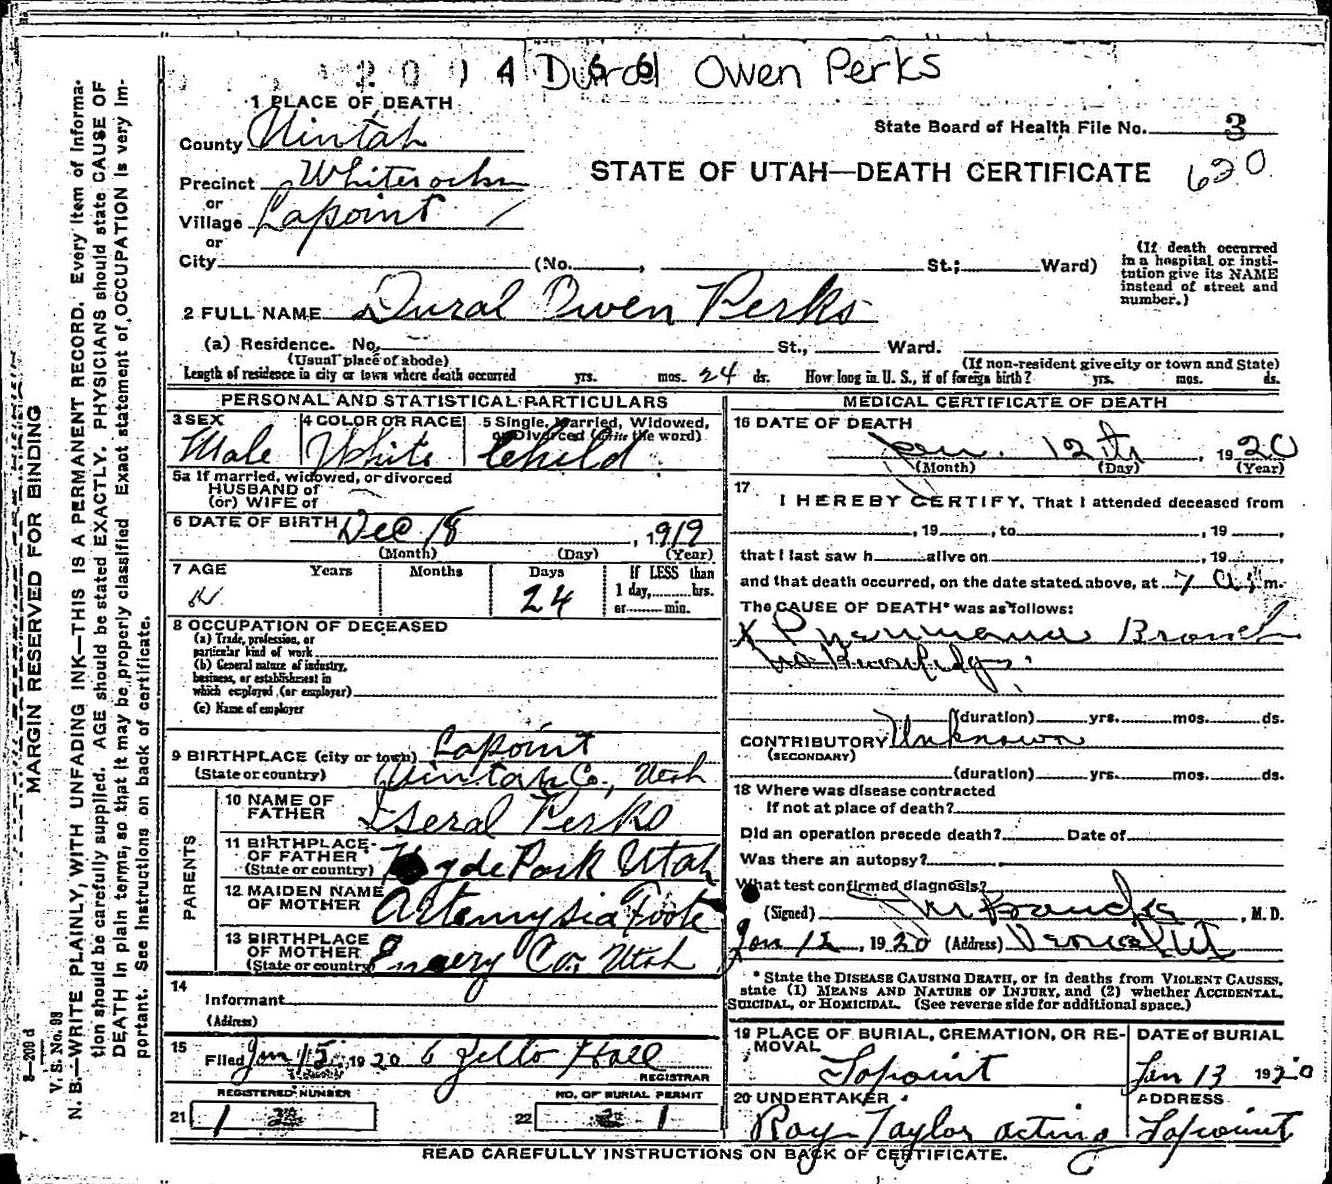 Dural Owen Perks
1 PLACE OF DEATH
State Board of Health File No. 3
County Uintah
STATE OF UTAH—DEATH CERTIFICATE 620
Precinct Whiterocks
or
Village Lapoint
or
City (No. , St.; Ward)
(If death occurred in a hospital or institution give its NAME instead of street and number.)
2 FULL NAME Dural Owen Perks
(a) Residence. No. St., Ward.
(Usual place of abode) (If non-resident give city or town and State)
Length of residence in city or town where death occurred yrs. mos. 24 ds. How long in U. S., if of foreign birth? yrs. mos. ds.
PERSONAL AND STATISTICAL PARTICULARS
3 SEX 4 COLOR OR RACE 5 Single, Married, Widowed,
or Divorced (write the word)
Male White Child
5a If married, widowed, or divorced
HUSBAND of
(or) WIFE of
6 DATE OF BIRTH Dec 18, 1919
(Month) (Day) (Year)
7 AGE Years Months Days If LESS than
1 day, hrs.
24 or min.
8 OCCUPATION OF DECEASED
(a) Trade, profession, or
particular kind of work
(b) General nature of industry,
business, or establishment in
which employed (or employer)
(c) Name of employer
9 BIRTHPLACE (city or town) Lapoint
(State or country) Uintah Co., Utah
PARENTS
10 NAME OF
FATHER Perks
11 BIRTHPLACE
OF FATHER Hyde Park Utah
(State or country)
12 MAIDEN NAME
OF MOTHER Artemysia Foote
13 BIRTHPLACE
OF MOTHER Emery Co., Utah
(State or country)
14
Informant
(Address)
15
Filed Jan 15, 1920 Zello Hall
REGISTRAR
REGISTERED NUMBER NO. OF BURIAL PERMIT
21 1 22 1
MEDICAL CERTIFICATE OF DEATH
16 DATE OF DEATH
Jan. 12th, 1920
(Month) (Day) (Year)
17
I HEREBY CERTIFY, That I attended deceased from
, 19 , to , 19 ,
that I last saw h alive on , 19 ,
and that death occurred, on the date stated above, at 7 A. m.
The CAUSE OF DEATH* was as follows:
(duration) yrs. mos. ds.
CONTRIBUTORY Unknown
(SECONDARY)
(duration) yrs. mos. ds.
18 Where was disease contracted
If not at place of death?
Did an operation precede death? Date of
Was there an autopsy?
What test confirmed diagnosis?
(Signed) , M. D.
Jan 12, 1920 (Address) Vernal Ut
* State the DISEASE CAUSING DEATH, or in deaths from VIOLENT CAUSES,
state (1) MEANS AND NATURE OF INJURY, and (2) whether ACCIDENTAL,
SUICIDAL, or HOMICIDAL. (See reverse side for additional space.)
19 PLACE OF BURIAL, CREMATION, OR RE-
MOVAL
DATE of BURIAL
Lapoint Jan 13 1920
20 UNDERTAKER ADDRESS
Roy Taylor acting Lapoint
READ CAREFULLY INSTRUCTIONS ON BACK OF CERTIFICATE.
MARGIN RESERVED FOR BINDING
V. S. No. 98
N. B.—WRITE PLAINLY, WITH UNFADING INK—THIS IS A PERMANENT RECORD. Every Item of Informa-
tion should be carefully supplied. AGE should be stated EXACTLY. PHYSICIANS should state CAUSE OF
DEATH in plain terms, so that it may be properly classified. Exact statement of OCCUPATION is very im-
portant. See instructions on back of certificate.